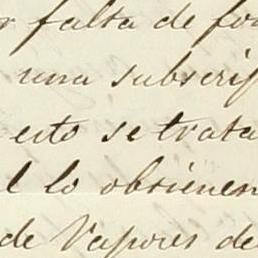 r falta de fo
una subscrip
esto se trata
l lo obsienen
de Vapores de